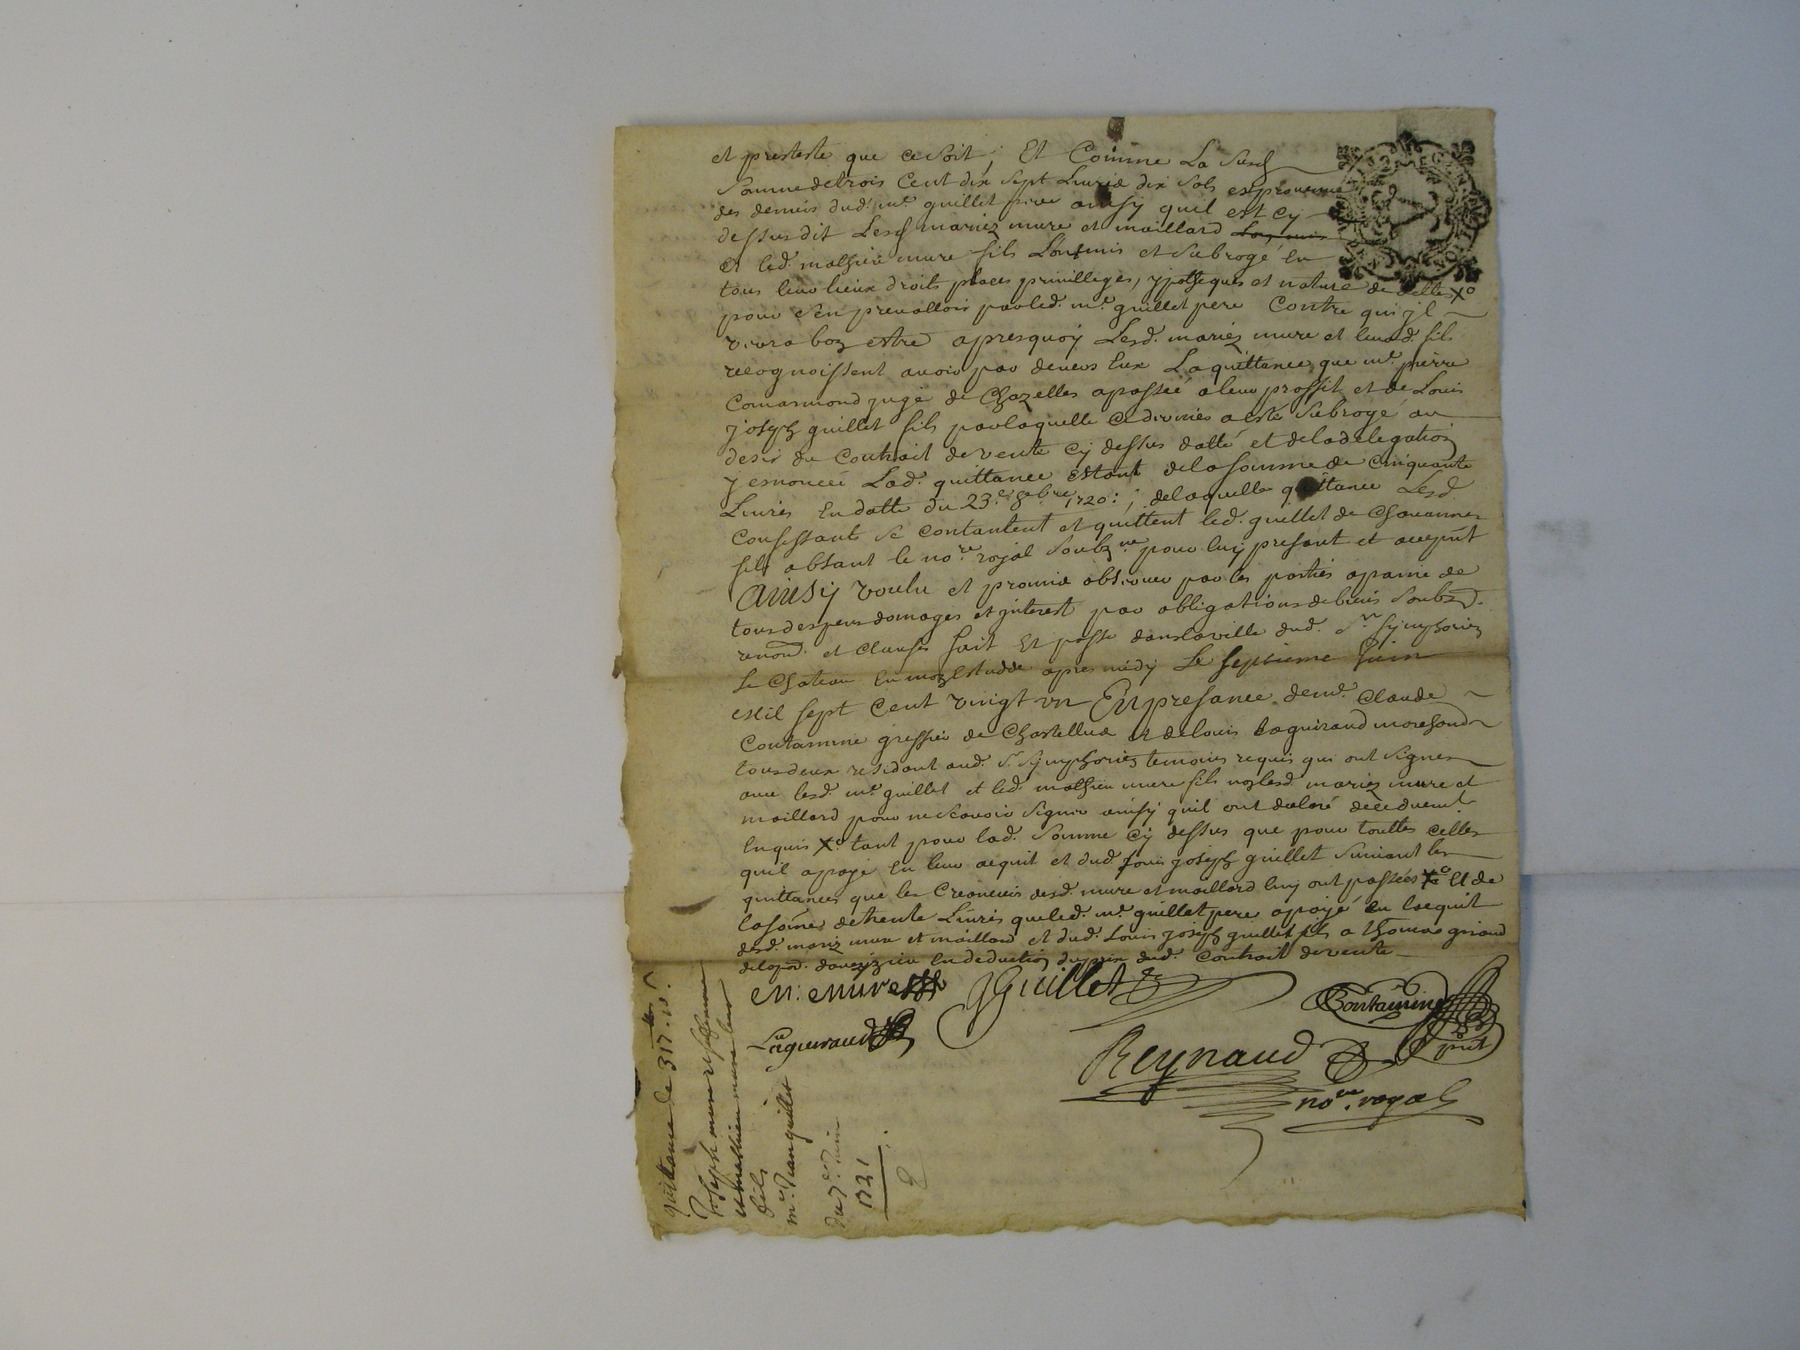 et presteste que ce soit ; Et Comme La Susd
Somme de trois Cent dix Sept Livres dix Sols est provenue
des deniers dud. mr. guillet pere ainsy quil est cy
dessus dit Lesd mariez mure et maillard
et led. mathieu mure fils Lont mis et Subrogé en
tous leur lieux droits places privilleges, ypotheques et nature de delle Xo
pour sen prevalloir par led. mr. guillet pere Contre qui jl
verra bon estre apresquoy Lesd. mariez mure et leurd. fils
recognoissent avoir par devers Eux La quittance que mr. pierre
Comarmond juge de Chazelles a passée a leur proffit et de Louis
joseph guillet fils par laquelle ce dernier a esté Subrogé au
desir du Contrait de vente cy dessus datté et de la delegation
y enoncee Lad. quittance estant de la somme de Cinquante
Livres En datte du 23.e 8bre 1720 : ; de laquelle quittance Lesd
Confessants se contantent et quittent led. guillet de Chavannes
fils absant le nore. royal Soubzne pour luy presant et aceptt
Ainsy voulu et promis observer par les parties a paine de
tous despens domages et jnterest par obligations de biens Soubz.
renon. et Clauses fait Et passé dans la ville dud. St. Symphorien
le Chateau En mon Estudde apres midy Le septieme Juin
mil sept Cent vingt un En presance de mr. Claude
Contamine greffier de Chastellus et de Louis Laguiraud marchand
tous deux residant aud. St. Symphorien temoins requis qui ont signes
avec lesd. mr. guillet et led. mathieu mure fils non lesd. mariez mure et
maillard pour ne scavoir signer ainsy quil ont declaré de ce duement
Enquis Xo. tant pour lad. Somme cy dessus que pour touttes celles
quil a payé En leur acquit et dud. Louis joseph guillet Suivant les
quittances que les Creanciers desd. mure et maillard luy ont passées Xo Et de
la somme de trente Livres que led. mr. guillet pere a payé En lacquit
desd. mariz mure et maillard et dud. Louis joseph guillet fils a thomas
En deduction du prix dud. Contrait de vente
M : Mure
JGuillet
Contamine
prt
Laguiraud
Reynaud
nore. royal
quittance de 317 ll. 10 s.
Joseph mure et sa femme
et mathieu mure leur
fils
mr. Jean guillet
du 7e. Juin
1721